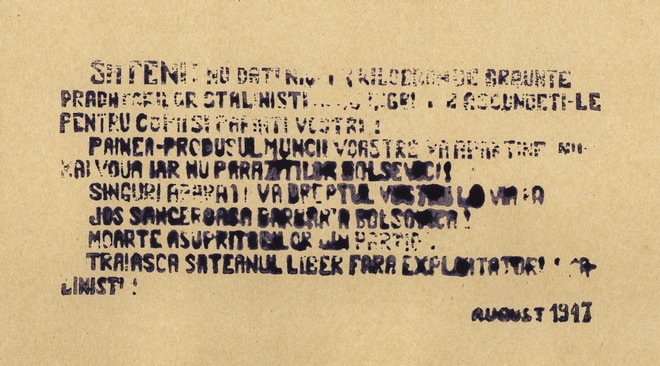 SATENI: NU DATI KILOGRAM DE GRAUNTE
PRADATORILOR STALINISTI ASCUNDETI-LE
PENTRU COPII SI PARINTI VOSTRI!
PAINEA-PRODUSUL MUNCII VOASTRE VA APARTINE NU-
MAI VOUA IAR NU PARAZITILOR BOLSEVICI!
SINGURI APARATI VA DREPTUL VOSTRU LA VIATA
JOS SANGEROASA BARBARIA BOLSOVICA!
MOARTE ASUPRITORILOR DIN PARTID!
TRAIASCA SATEANUL LIBER FARA EXPLOATATORI STA-
LINISTI!
AUGUST 1947